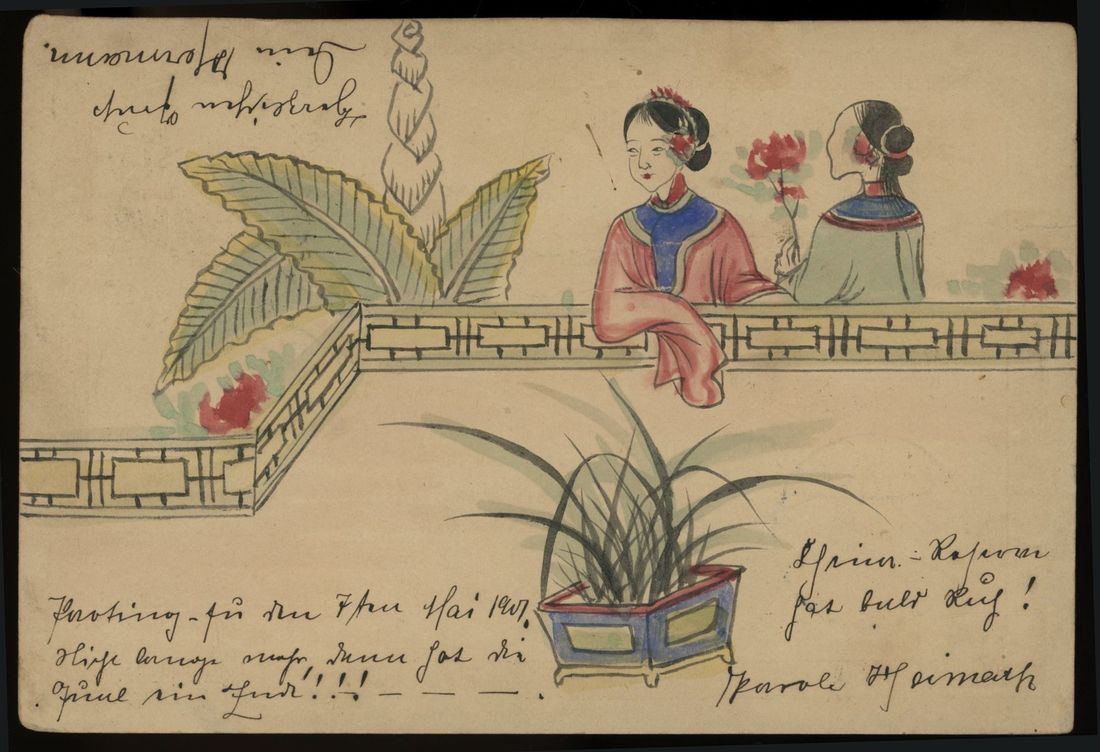 Herzlichen Gruß
Dein Hermann.
Paoting-fu den 7ten Mai 1901.
Nicht lange mehr, dann hat die
Qual ein Ende!!! — — — .
China-Reserve
hat bald Ruh!
Parole Heimath